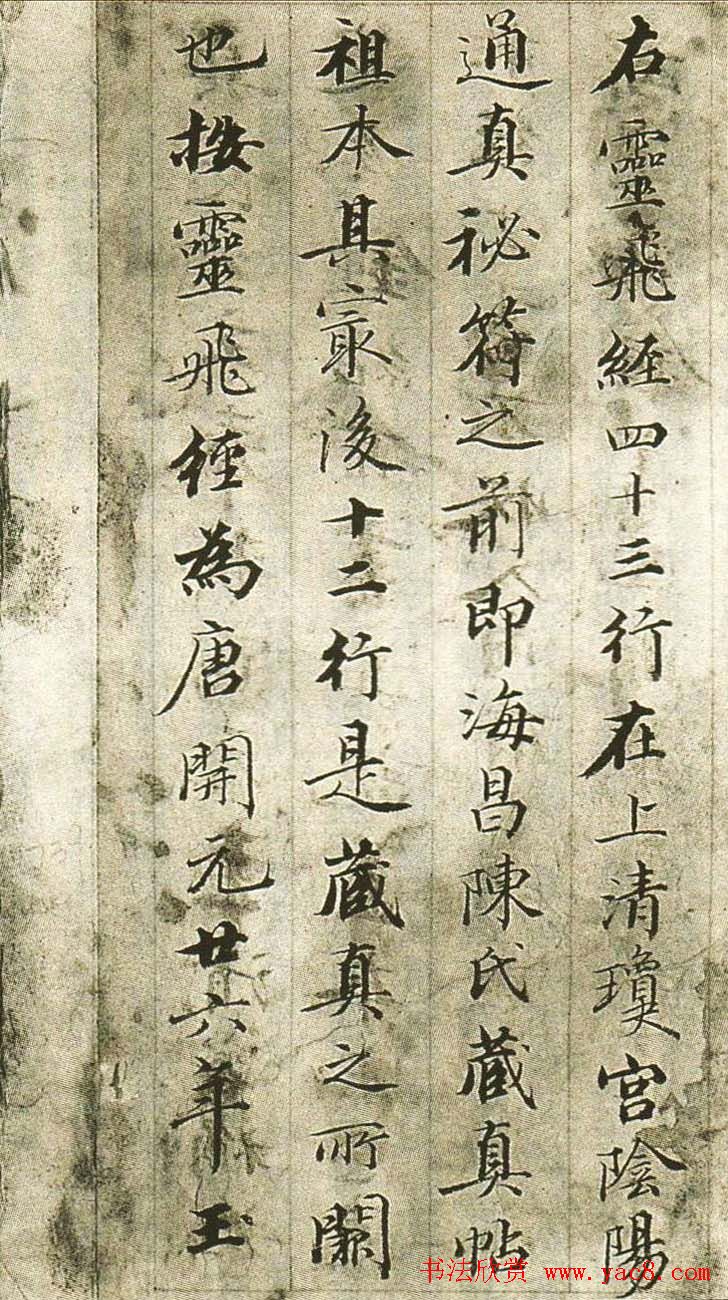 右靈飛經四十三行在上清瓊宮陰陽
通真秘符之前即海昌陳氏藏真帖
祖本其冣後十二行是藏真之所闕
也按靈飛經為唐開元廿六年玉
书法欣赏 www.yac8.com